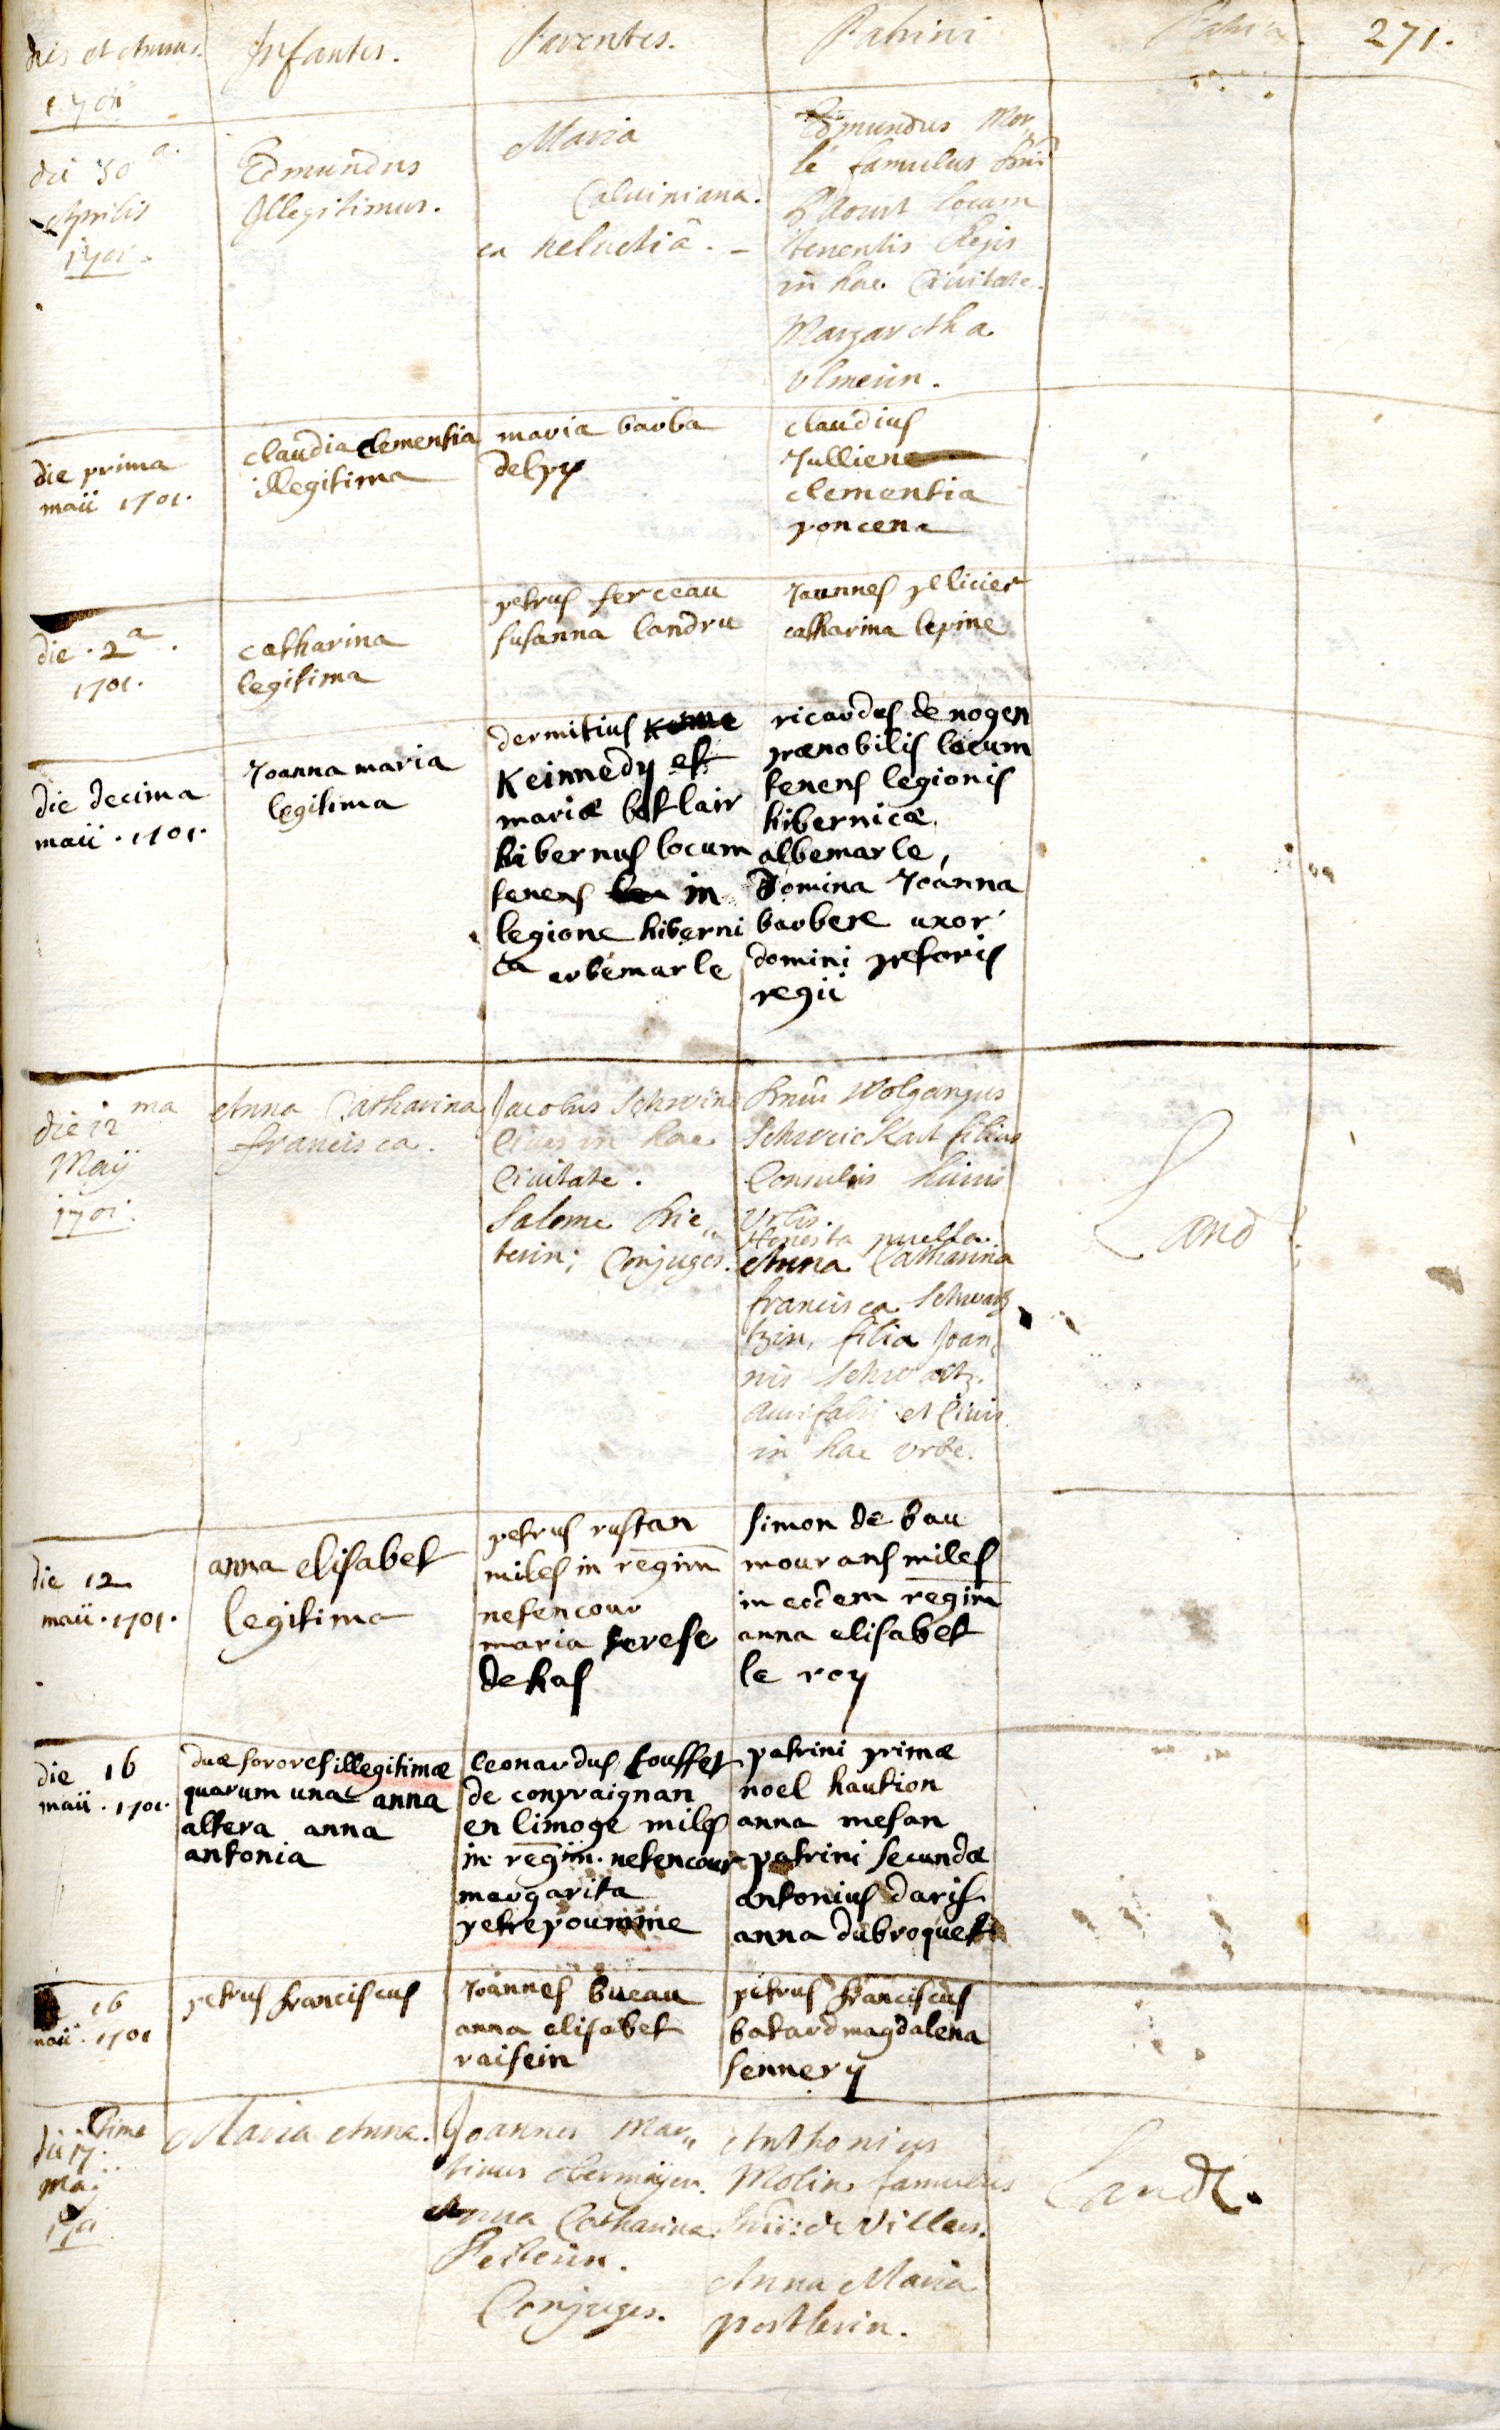 dies et Annus.
1701
Infantes.
Parentes.
Patrini
Patria.
271.
die 30 a.
Aprilis
1701.
Edmundus
Illegitimus.
Maria
Calviniana.
ex helvetiâ. -
Edmundus Mor„
lé famulus Dni
locum
tenentis Regis
in hac Civitate.
Margaretha
Ulmerin.
die prima
maii 1701.
claudia clementia
illegitima
maria barba
delpy
claudius
Jullien
clementia
poncena
die . 2a .
1701.
catharina
legitima
petrus ferceau
susanna landru
Joannes pellicier
catharina lepine
die decima
maii . 1701.
Joanna maria
legitima
dermitius
Keinnedy et
mariæ botlair
hibernus locum
tenens in
legione hiberni
ca erbemarle
ricardus de nogen
prænobilis locum
tenens legionis
hibernicæ
albemarle,
Domina Joanna
barbere uxor
domini pretoris
regii
die 12 ma
Maÿ
1701.
Anna Catharina
francisca.
Jacobus Schwind
Cives in hac
Civitate.
Salome Die„
terin; Conjuges.
Dnus Wolgangus
Schweickart filius
Consulis huius
Urbis.
Honesta puella.
Anna Catharina
francisca Schwart
tzin, filia Joan„
nis Schwartz.
Aurifabri et Civis
in hac Urbe.
Land
die 12
maii . 1701.
anna elisabet
legitima
petrus rustan
miles in regim
netencour
maria terese
dehas
simon de bau
mourans miles
in eodem regim
anna elisabet
le roy
die 16
maii . 1701.
duæ sorores illegitimæ
quarum una anna
altera anna
antonia
leonardus touffet
de conpraignan
en limoge miles
in regim. netencour
margarita
petrepoumme
patrini primæ
noel haution
anna mesan
patrini secundæ
antonius daris
anna dubroquet
16
maii . 1701
petrus franciscus
Joannes bueau
anna elisabet
raisein
petrus franciscus
batard magdalena
sennery
die 17. tima
Maÿ
1701
Maria Anna.
Joannes Mar„
tinus obermayer.
Anna Catharina
Feilerin.
Conjuges.
Anthonius
Molin famulus
Dni: de Villars.
Anna Maria
postlerin.
Landt.